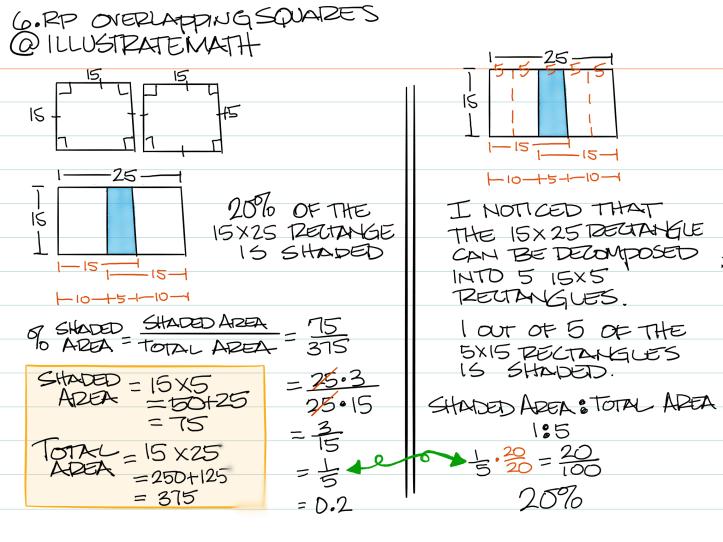 6.RP OVERLAPPING SQUARES
@ ILLUSTRATEMATH
15 15
15 15
25
15
15
15
10 5 10
20% OF THE
15×25 RECTANGE
IS SHADED
% SHADED AREA = SHADED AREA / TOTAL AREA = 75/375
SHADED AREA = 15×5
= 50+25
= 75
TOTAL AREA = 15×25
= 250+125
= 375
= 25•3 / 25•15
= 3/15
= 1/5
= 0.2
25
5 5 5 5 5
15
15
15
10 5 10
I NOTICED THAT
THE 15×25 RECTANGLE
CAN BE DECOMPOSED
INTO 5 15×5
RECTANGLES.
1 OUT OF 5 OF THE
5×15 RECTANGLES
IS SHADED.
SHADED AREA : TOTAL AREA
1:5
1/5 • 20/20 = 20/100
20%